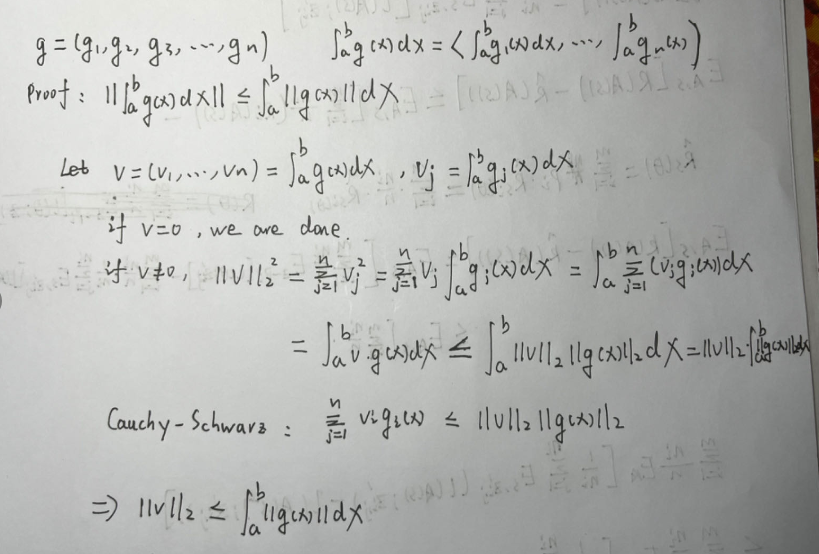 g = (g₁, g₂, g₃, ⋯, gₙ) ∫ₐᵇ g(x)dx = (∫ₐᵇ g₁(x)dx, ⋯, ∫ₐᵇ gₙ(x))
Proof: ||∫ₐᵇ g(x)dx|| ≤ ∫ₐᵇ ||g(x)||dx
Let v = (v₁, ⋯, vₙ) = ∫ₐᵇ g(x)dx, vⱼ = ∫ₐᵇ gⱼ(x)dx
if v=0, we are done.
if v≠0, ||v||₂² = Σⱼ₌₁ⁿ vⱼ² = Σⱼ₌₁ⁿ vⱼ ∫ₐᵇ gⱼ(x)dx = ∫ₐᵇ Σⱼ₌₁ⁿ (vⱼgⱼ(x))dx
= ∫ₐᵇ v·g(x)dx ≤ ∫ₐᵇ ||v||₂ ||g(x)||₂ dx = ||v||₂·∫ₐᵇ ||g(x)||₂dx
Cauchy-Schwarz: Σⱼ₌₁ⁿ vᵢgᵢ(x) ≤ ||v||₂ ||g(x)||₂
⇒ ||v||₂ ≤ ∫ₐᵇ ||g(x)||dx